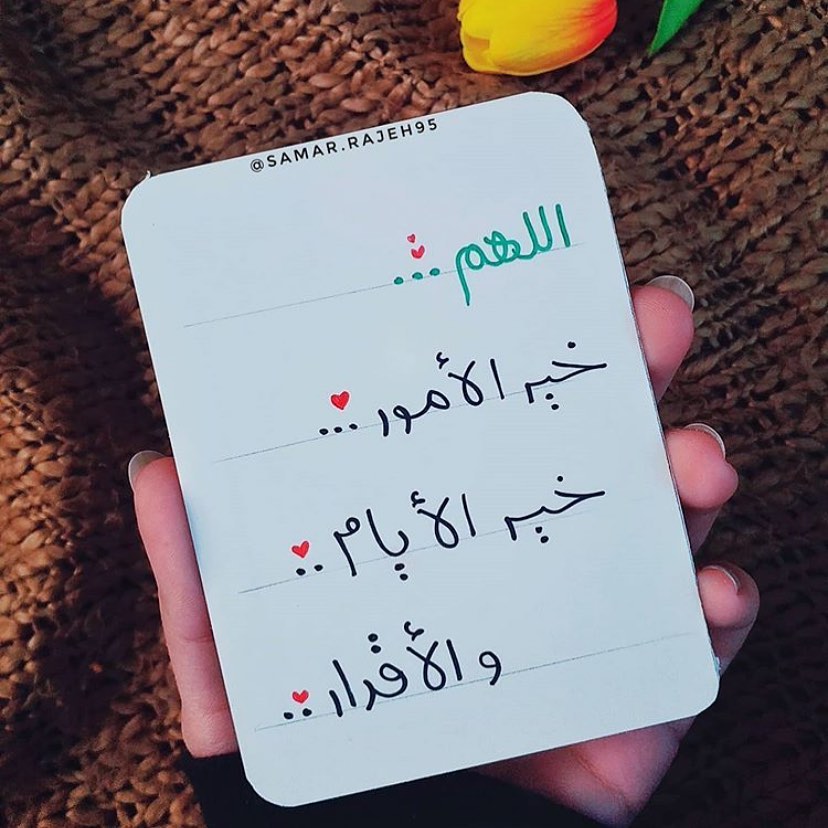 @SAMAR.RAJEH95
اللهم...
خير الأمور...
خير الأيام..
والأقدار..